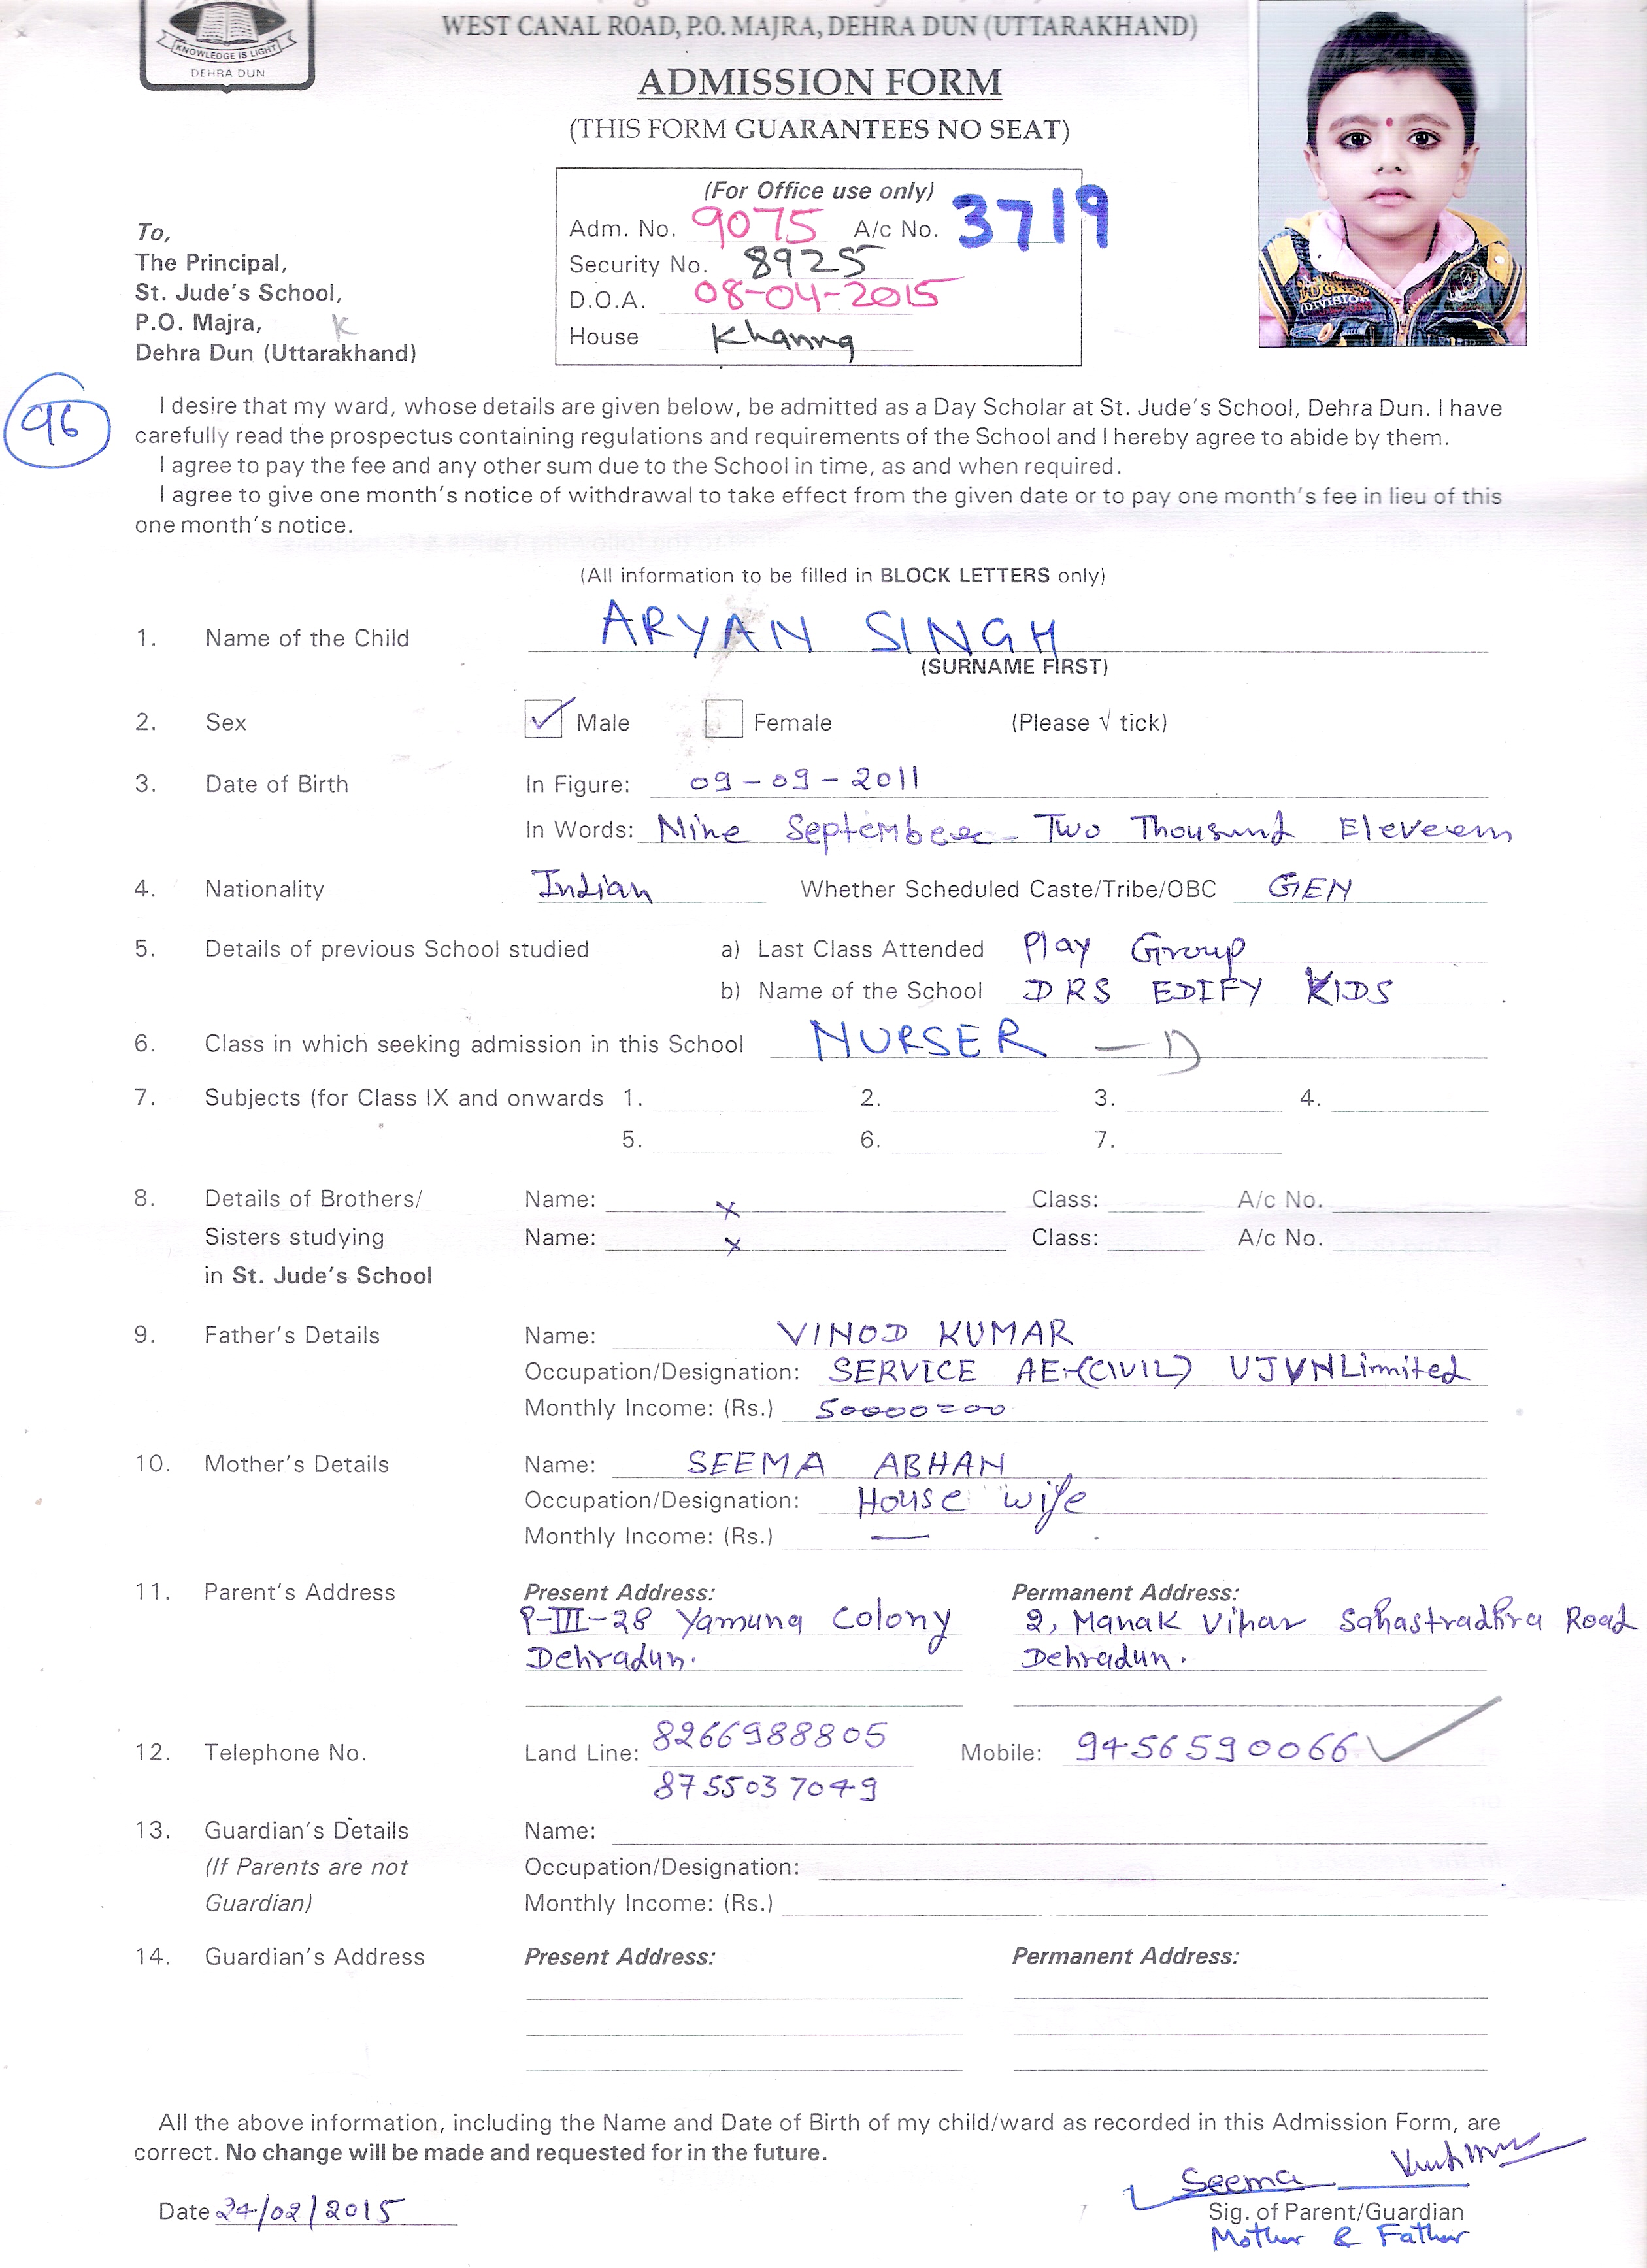 KNOWLEDGE IS LIGHT
DEHRA DUN
WEST CANAL ROAD, P.O. MAJRA, DEHRA DUN (UTTARAKHAND)
ADMISSION FORM
(THIS FORM GUARANTEES NO SEAT)
(For Office use only)
Adm. No. 9075 A/c No. 3719
Security No. 8925
D.O.A. 08-04-2015
House Khanna
To,
The Principal,
St. Jude's School,
P.O. Majra, K
Dehra Dun (Uttarakhand)
96
I desire that my ward, whose details are given below, be admitted as a Day Scholar at St. Jude's School, Dehra Dun. I have
carefully read the prospectus containing regulations and requirements of the School and I hereby agree to abide by them.
I agree to pay the fee and any other sum due to the School in time, as and when required.
I agree to give one month's notice of withdrawal to take effect from the given date or to pay one month's fee in lieu of this
one month's notice.
(All information to be filled in BLOCK LETTERS only)
1. Name of the Child ARYAN SINGH
(SURNAME FIRST)
2. Sex ✓ Male Female (Please √ tick)
3. Date of Birth In Figure: 09-09-2011
In Words: Nine September Two Thousand Eleveen
4. Nationality Indian Whether Scheduled Caste/Tribe/OBC GEN
5. Details of previous School studied a) Last Class Attended Play Group
b) Name of the School DRS EDIFY KIDS
6. Class in which seeking admission in this School NURSER — D
7. Subjects (for Class IX and onwards 1. 2. 3. 4.
5. 6. 7.
8. Details of Brothers/ Name: x Class: A/c No.
Sisters studying Name: x Class: A/c No.
in St. Jude's School
9. Father's Details Name: VINOD KUMAR
Occupation/Designation: SERVICE AE-(CIVIL) UJVNLimited
Monthly Income: (Rs.) 50000=00
10. Mother's Details Name: SEEMA ABHAN
Occupation/Designation: House wife
Monthly Income: (Rs.) —
11. Parent's Address Present Address: Permanent Address:
P-III-28 Yamuna Colony 2, Manak Vihar Sahastradhra Road
Dehradun. Dehradun.
12. Telephone No. Land Line: 8266988805 Mobile: 9456590066 ✓
8755037049
13. Guardian's Details Name:
(If Parents are not Occupation/Designation:
Guardian) Monthly Income: (Rs.)
14. Guardian's Address Present Address: Permanent Address:
All the above information, including the Name and Date of Birth of my child/ward as recorded in this Admission Form, are
correct. No change will be made and requested for in the future.
Seema
Date 24/02/2015 Sig. of Parent/Guardian
Mother & Father